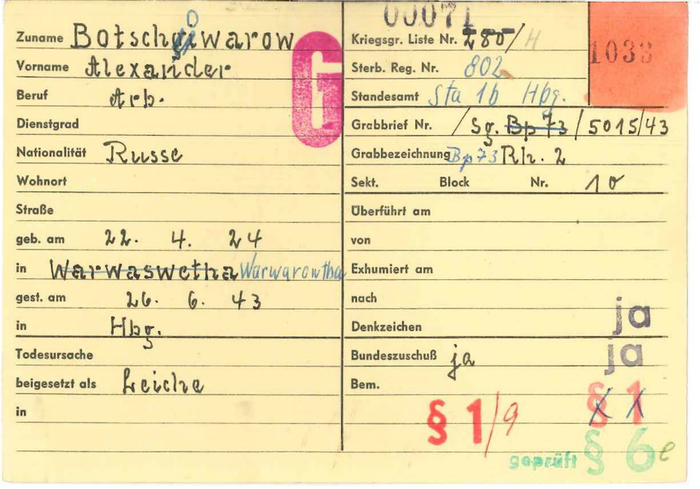 00071
Zuname Botschajwarow
Kriegsgr. Liste Nr. 280/H
1033
Vorname Alexander
Sterb. Reg. Nr. 802
Beruf Arb.
Standesamt Sta 1b Hbg.
G
Dienstgrad
Grabbrief Nr. /Sg. Bp 73/5015/43
Nationalität Russe
Grabbezeichnung Bp73 Rh. 2
Wohnort
Sekt. Block Nr. 10
Straße
Überführt am
geb. am 22. 4. 24
von
in Warwaswetha Warwarowtha
Exhumiert am
gest. am 26. 6. 43
nach
in Hbg.
Denkzeichen ja
Todesursache
Bundeszuschuß ja ja
beigesetzt als Leiche
Bem. § 1
in
§ 1/9
geprüft § 6 e